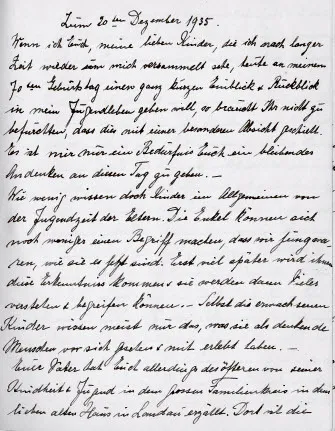 Zum 20ten Dezember 1935.
Wenn ich Euch, meine lieben Kinder, die ich nach langer
Zeit wieder um mich versammelt sehe, heute an meinem
70ten Geburtstag einen ganz kurzen Einblick & Rückblick
in mein Jugendleben geben will, so braucht Ihr nicht zu
befürchten, dass dies mit einer besonderen Absicht geschieht.
Es ist mir nur ein Bedürfnis Euch ein bleibendes
Andenken an diesen Tag zu geben. –
Wie wenig wissen doch Kinder im Allgemeinen von
der Jugendzeit der Eltern. Die Enkel können sich
noch weniger einen Begriff machen, dass wir jung wa-
ren, wie sie es jetzt sind. Erst viel später wird ihnen
diese Erkenntniss kommen & sie werden dann Vieles
verstehen & begreifen können. – Selbst die erwachsenen
Kinder wissen meist nur das, was sie als denkende
Menschen vor sich sahen & mit erlebt haben. –
Euer Vater hat Euch allerdings des öfteren von seiner
Kindheit & Jugend in dem grossen Familienkreis in dem
lieben alten Haus in Landau erzählt. Dort ist die